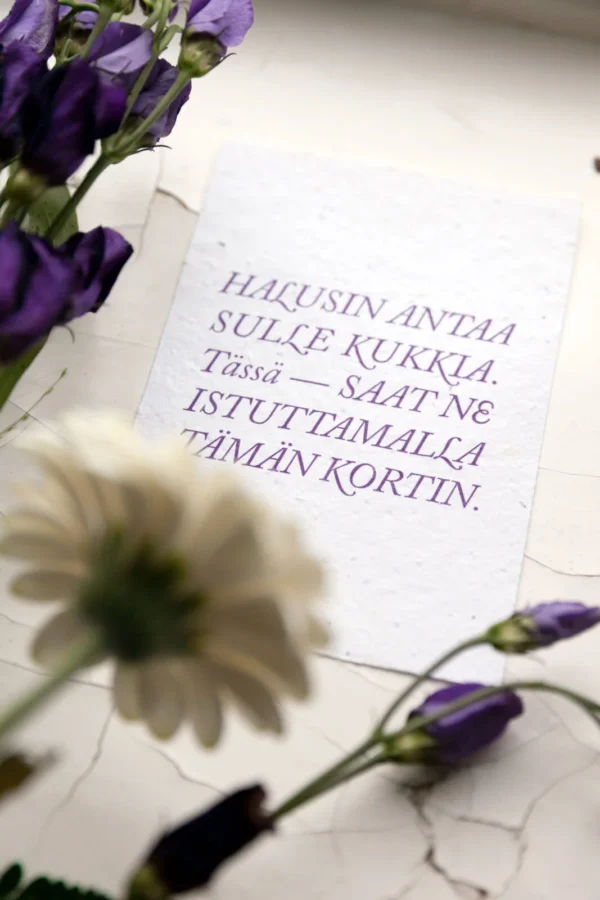 HALUSIN ANTAA
SULLE KUKKIA.
Tässä — SAAT NE
ISTUTTAMALLA
TÄMÄN KORTIN.